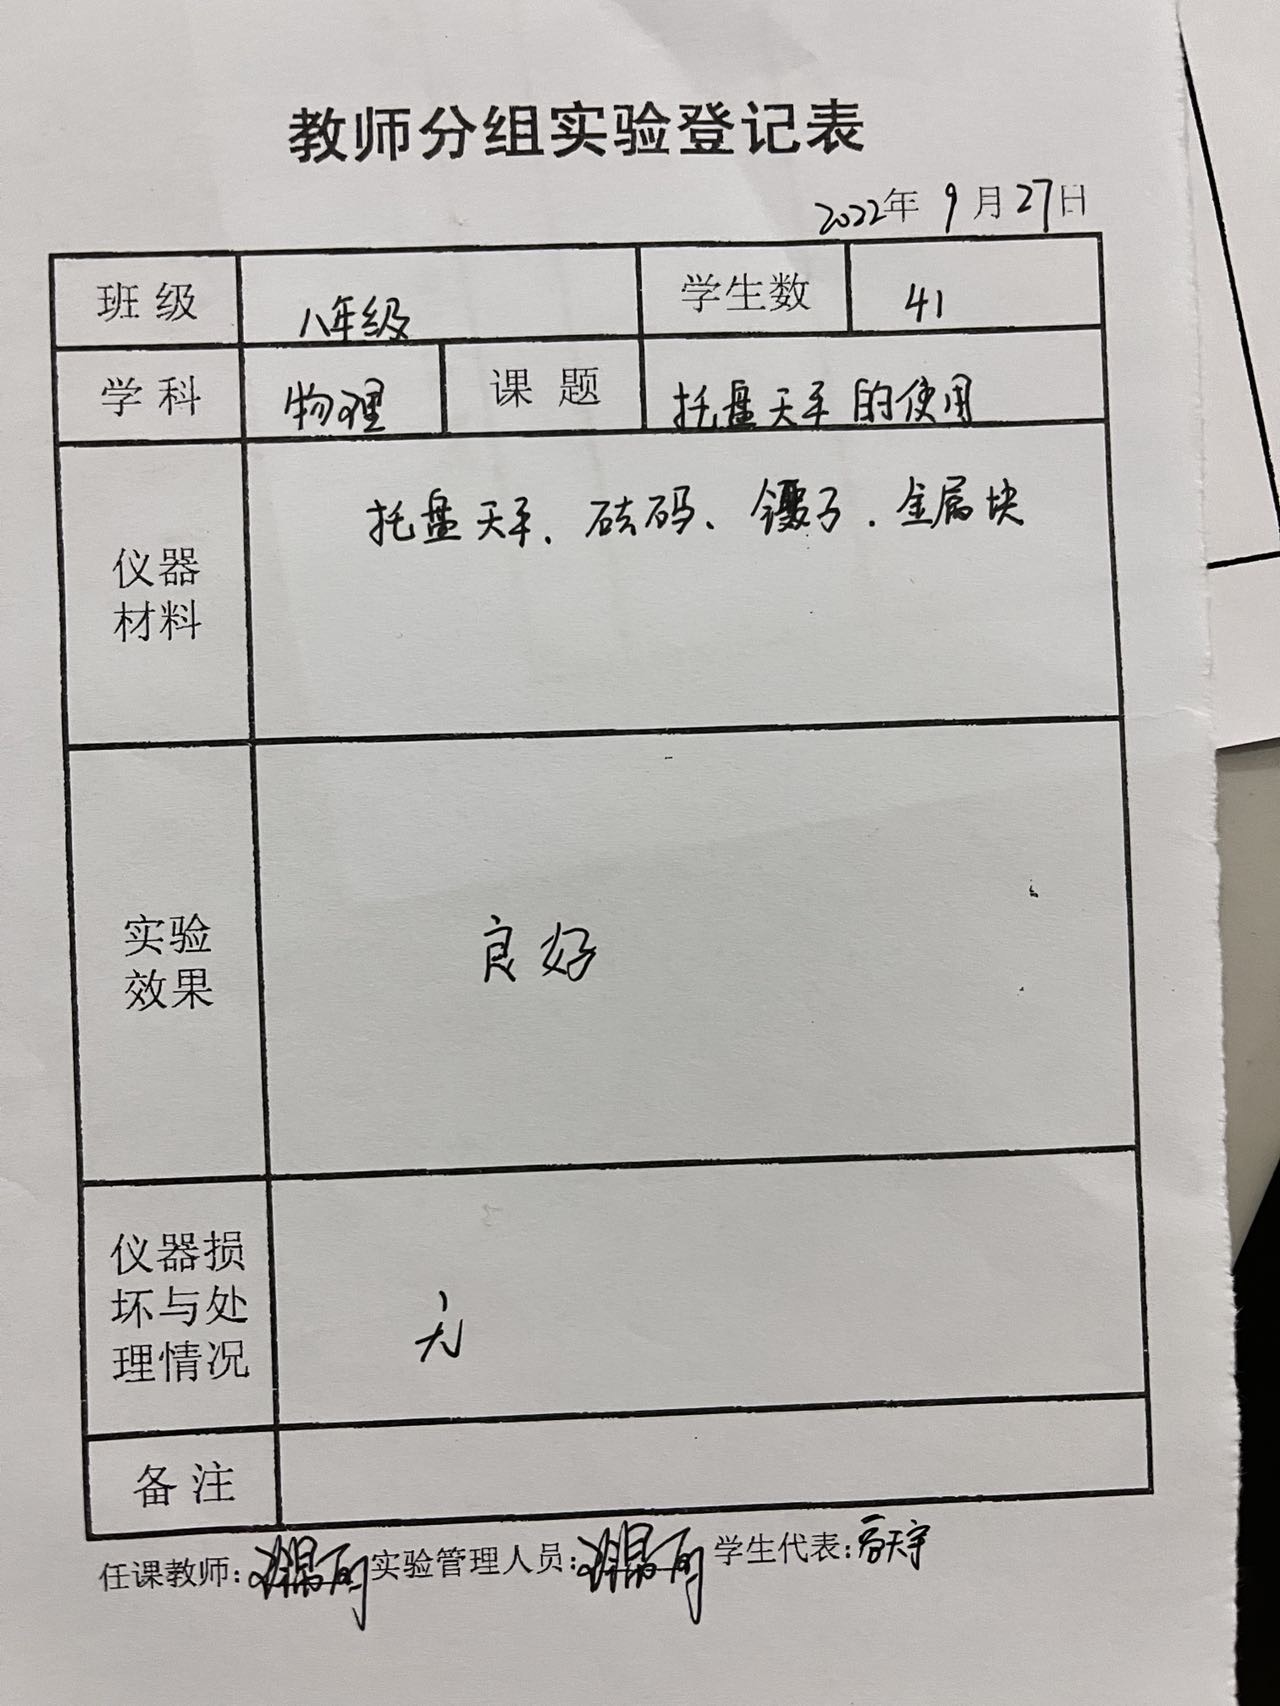 教师分组实验登记表
2022年 9月27日
班级 八年级 学生数 41
学科 物理 课题 托盘天平的使用
仪器
材料
托盘天平、砝码、镊子、金属块
实验
效果
良好
仪器损
坏与处
理情况
无
备注
任课教师: 实验管理人员: 学生代表: